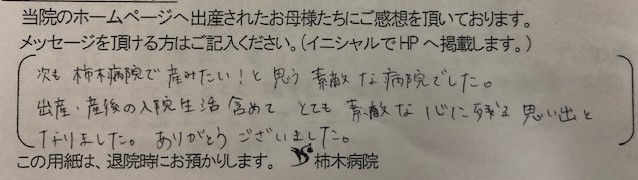 当院のホームページへ出産されたお母様たちにご感想を頂いております。
メッセージを頂ける方はご記入ください。(イニシャルでHPへ掲載します。)
次も柿木病院で産みたい!と思う素敵な病院でした。
出産・産後の入院生活含めてとても素敵な心に残る思い出と
なりました。ありがとうございました。
この用紙は、退院時にお預かりします。 柿木病院